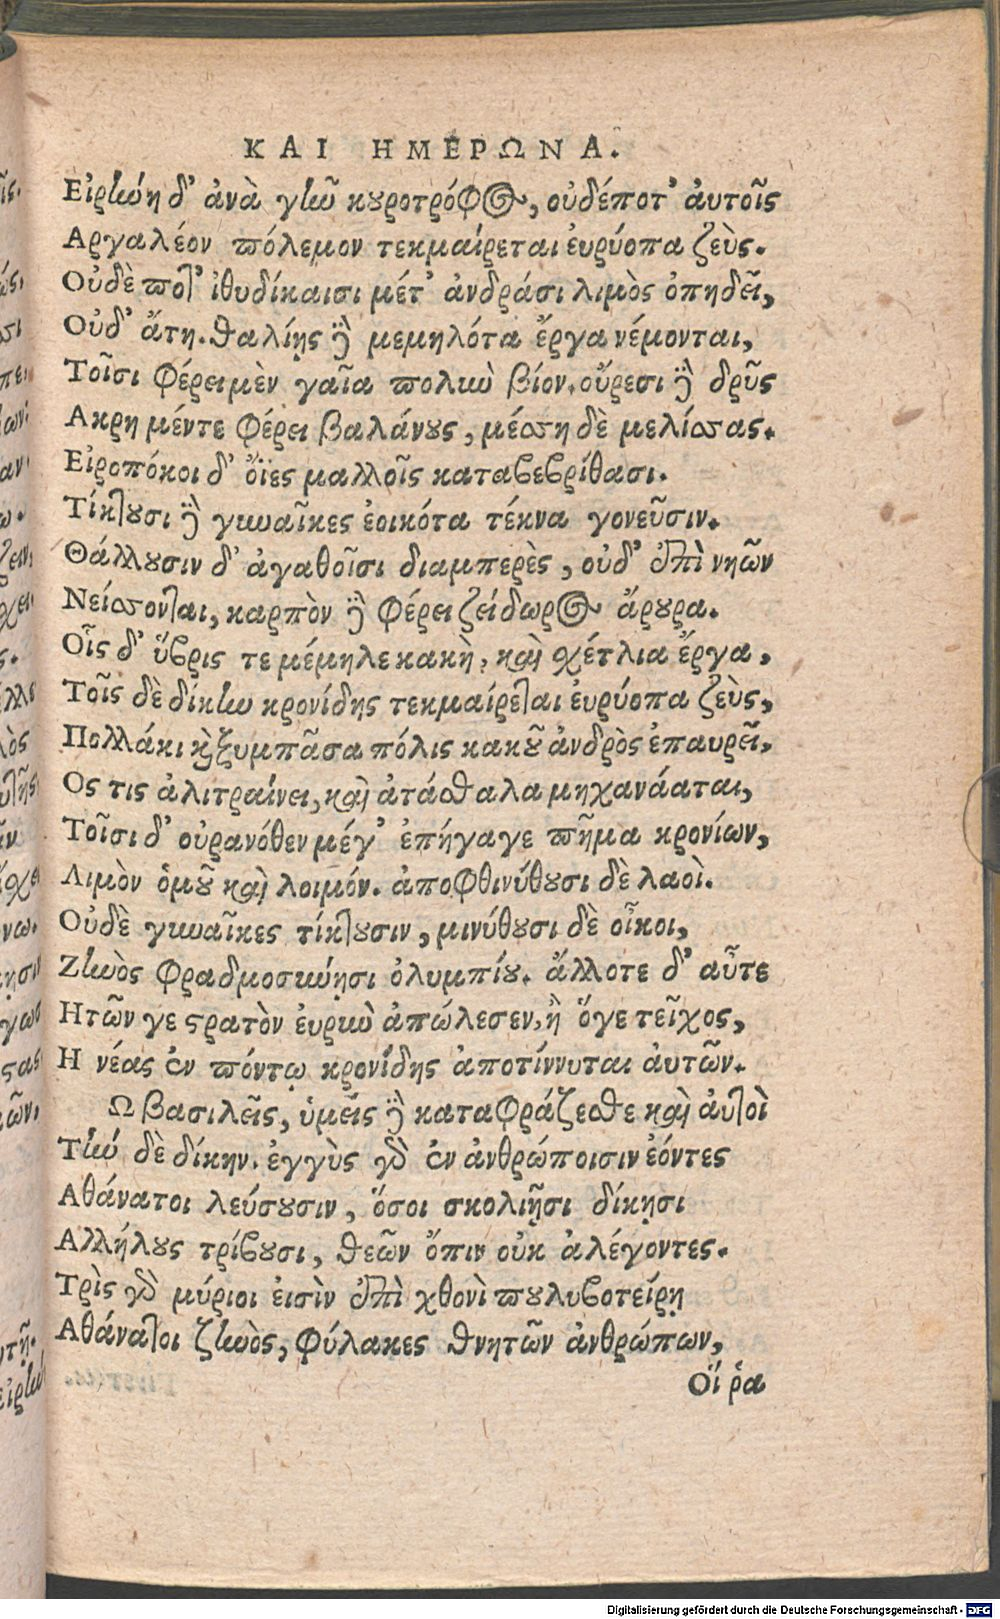 ΚΑΙ ΗΜΕΡΩΝ Α.
Εἰρήνη δ' ἀνὰ γῆν κουροτρόφος, οὐδέποτ' ἀυτοῖς
Αργαλέον πόλεμον τεκμαίρεται ἐυρύοπα ζεὺς.
Οὐδὲ ποτ' ἰθυδίκαισι μέτ' ἀνδράσι λιμὸς ὀπηδεῖ,
Οὐδ' ἄτη. θαλίῃς δὲ μεμηλότα ἔργα νέμονται,
Τοῖσι φέρει μὲν γαῖα πολὺν βίον, οὔρεσι δὲ δρῦς
Ακρη μέντε φέρει βαλάνους, μέσση δὲ μελίσσας.
Εἰροπόκοι δ' ὄϊες μαλλοῖς καταβεβρίθασι.
Τίκτουσι δὲ γυναῖκες ἐοικότα τέκνα γονεῦσιν.
Θάλλουσιν δ' ἀγαθοῖσι διαμπερὲς, οὐδ' ἐπὶ νηῶν
Νείσσονται, καρπὸν δὲ φέρει ζείδωρος ἄρουρα.
Οἷς δ' ὕβρις τε μέμηλε κακὴ, καὶ σχέτλια ἔργα,
Τοῖς δὲ δίκην κρονίδης τεκμαίρεται ἐυρύοπα ζεὺς,
Πολλάκι καὶ ξυμπᾶσα πόλις κακοῦ ἀνδρὸς ἐπαυρεῖ,
Ος τις ἀλιτραίνει, καὶ ἀτάσθαλα μηχανάαται,
Τοῖσι δ' οὐρανόθεν μέγ' ἐπήγαγε πῆμα κρονίων,
Λιμὸν ὁμοῦ καὶ λοιμόν. ἀποφθινύθουσι δὲ λαοὶ.
Οὐδὲ γυναῖκες τίκτουσιν, μινύθουσι δὲ οἶκοι,
Ζηνὸς φραδμοσύνῃσι ὀλυμπίου. ἄλλοτε δ' αὖτε
Ητῶν γε στρατὸν ἐυρὺν ἀπώλεσεν, ἢ ὅγε τεῖχος,
Η νέας ἐν πόντῳ κρονίδης ἀποτίννυται ἀυτῶν.
Ω βασιλεῖς, ὑμεῖς δὲ καταφράζεσθε καὶ ἀυτοὶ
Τήν δὲ δίκην. ἐγγὺς γὰρ ἐν ἀνθρώποισιν ἐόντες
Αθάνατοι λεύσουσιν, ὅσοι σκολιῇσι δίκῃσι
Αλλήλους τρίβουσι, θεῶν ὄπιν οὐκ ἀλέγοντες.
Τρὶς γὰρ μύριοι ἐισὶν ἐπὶ χθονὶ πουλυβοτείρῃ
Αθάνατοι ζηνὸς, φύλακες θνητῶν ἀνθρώπων,
Οἵ ῥα
Digitalisierung gefördert durch die Deutsche Forschungsgemeinschaft - DFG